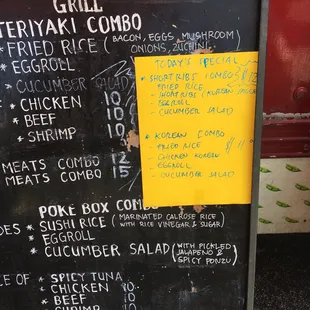 GRILL
TERIYAKI COMBO
* FRIED RICE (BACON, EGGS, MUSHROOM)
ONIONS, ZUCHINI
* EGGROLL
* CUCUMBER SALAD
* CHICKEN 10
* BEEF 10
* SHRIMP 10
MEATS COMBO 12
MEATS COMBO 15
TODAY'S SPECIAL
* SHORT RIBS COMBO $
- FRIED RICE
- SHORT RIBS (KOREAN
- EGGROLL
- CUCUMBER SALAD
* KOREAN COMBO
- FRIED RICE $11
- CHICKEN KOREAN
- EGGROLL
- CUCUMBER SALAD
POKE BOX COMBO
DES * SUSHI RICE (MARINATED CALROSE RICE
WITH RICE VINEGAR & SUGAR)
* EGGROLL
* CUCUMBER SALAD (WITH PICKLED
JALAPENO &
SPICY PONZU)
CE OF * SPICY TUNA
* CHICKEN 10
* BEEF 10
SHRIMP